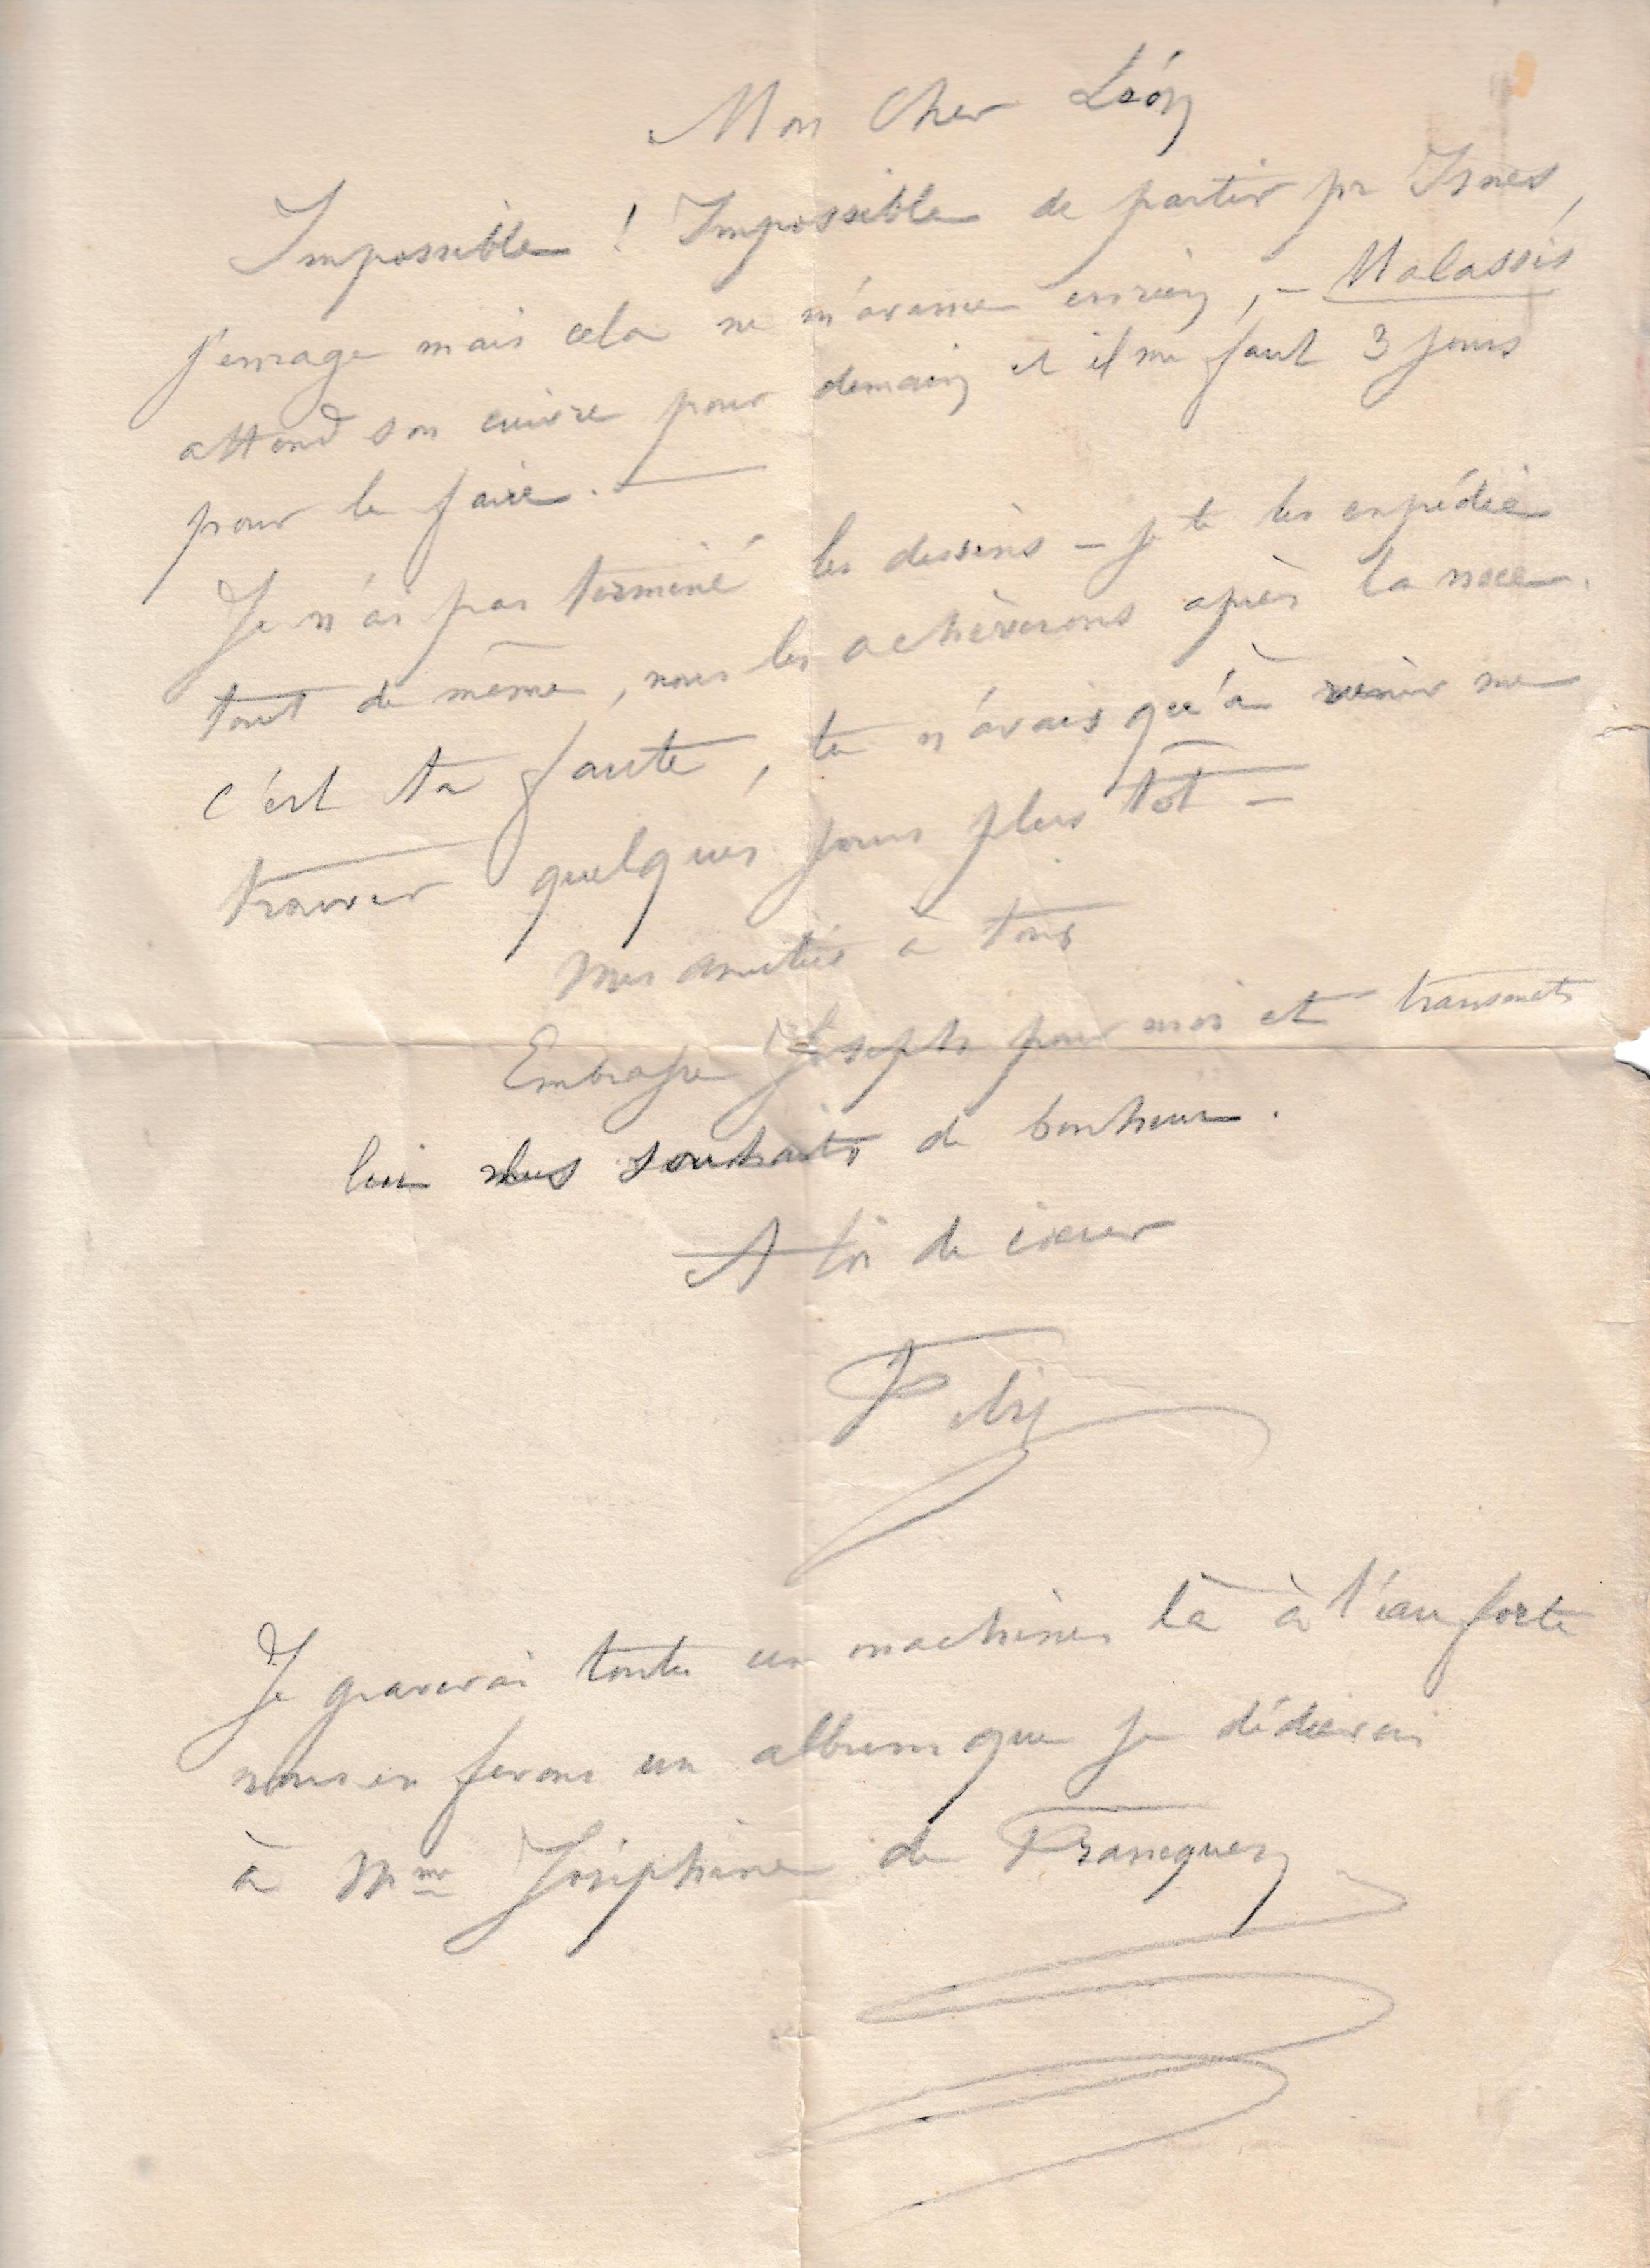 Mon Cher Léon
Impossible ! Impossible de partir pr Isnes,
j'enrage mais cela ne m'avance en rien, – Malassis
attend son cuivre pour demain et il me faut 3 jours
pour le faire. —
Je n'ai pas terminé les dessins – je te les expédie
tout de même, nous les achèverons après la noce.
c'est ta faute, tu n'avais qu'à venir me
trouver quelques jours plus tôt –
Mes amitiés à tous
Embrasse Joseph pour moi et transmets
lui mes souhaits de bonheur.
A toi de cœur
Fély
Je graverai toutes ces machines là à l'eau forte
nous en ferons un album que je dédierai
à Mme Joséphine de